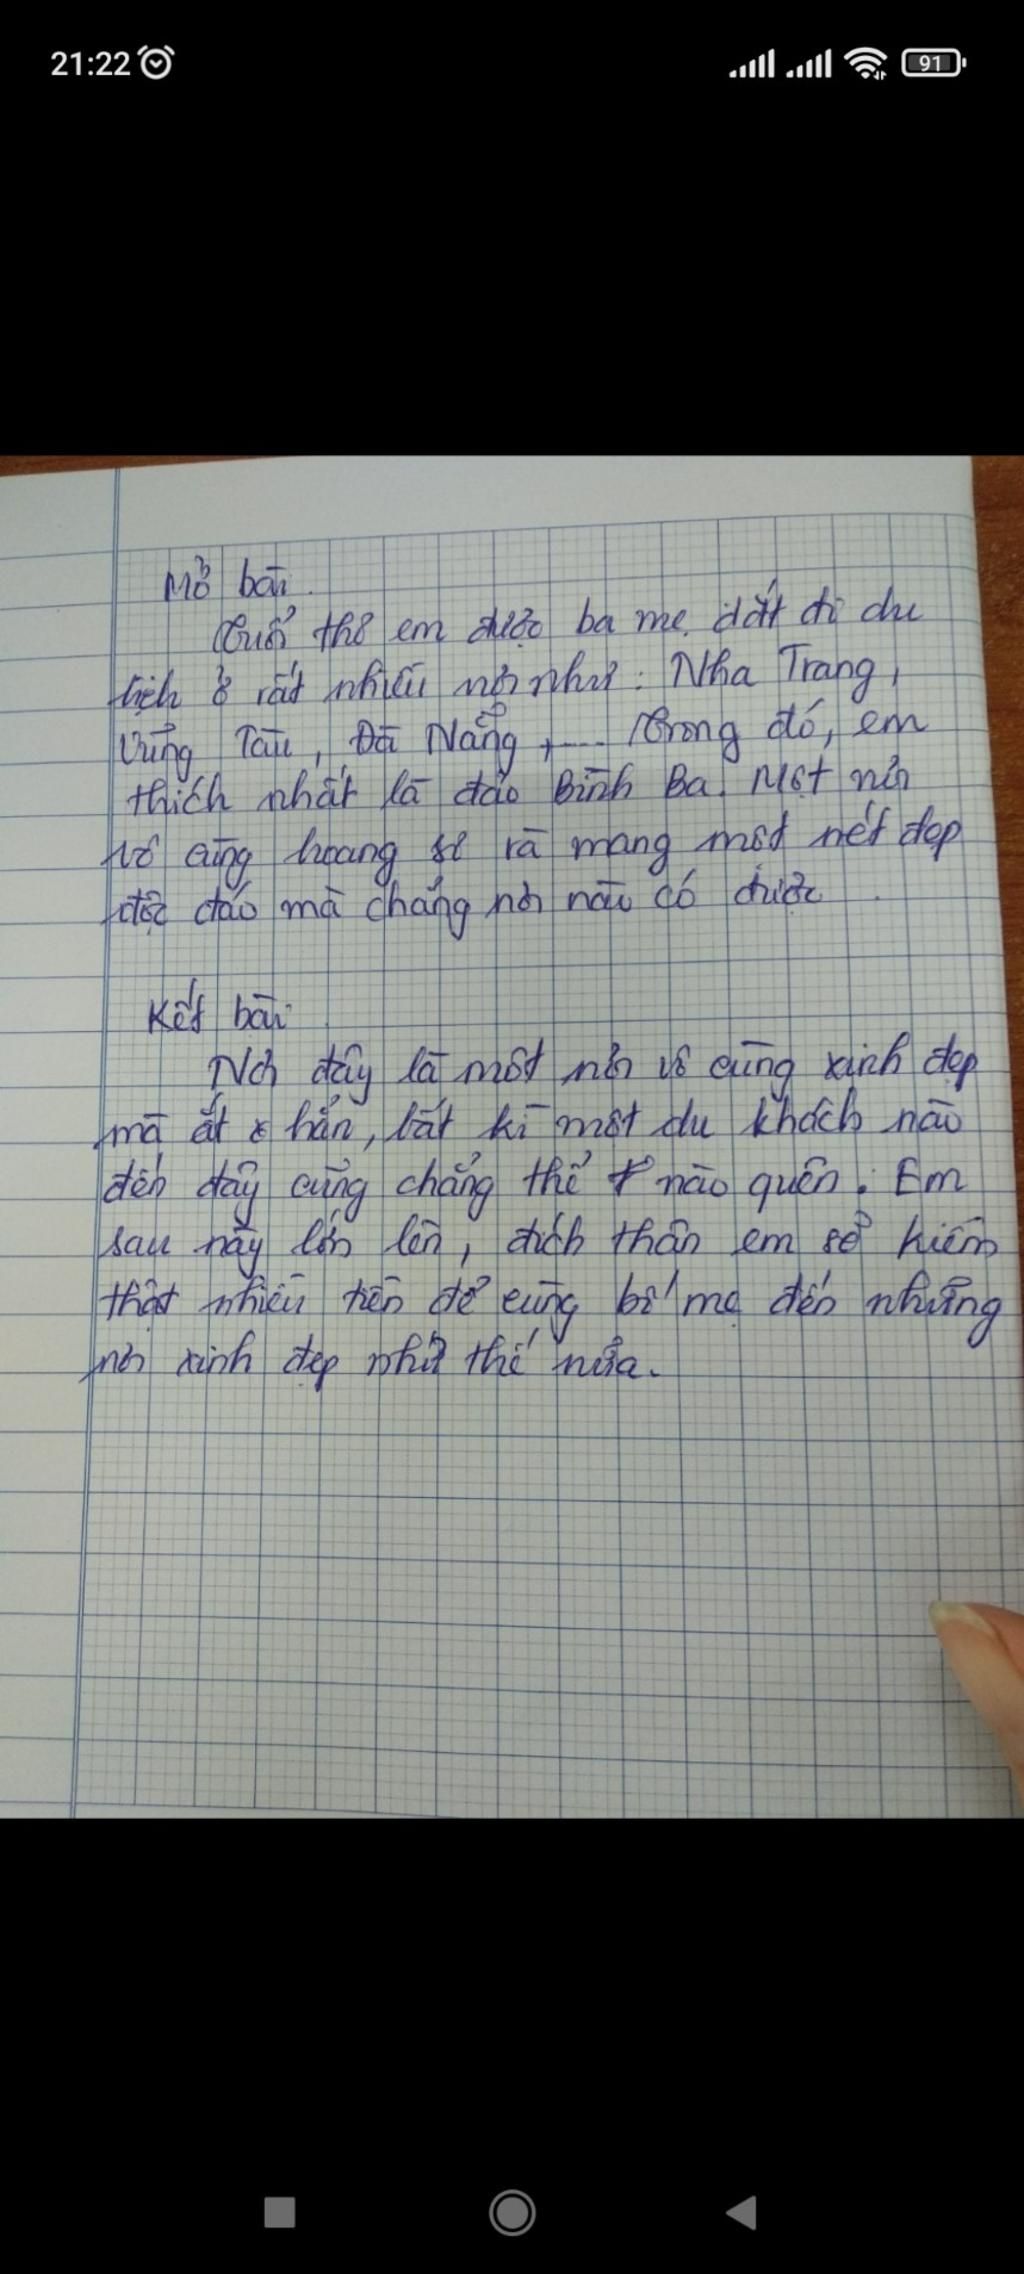 21:22
91
Mở bài.
Tuổi thơ em được ba mẹ dắt đi du
lịch ở rất nhiều nơi như: Nha Trang,
Vũng Tàu, Đà Nẵng, .... Trong đó, em
thích nhất là đảo Bình Ba. Một nơi
vô cùng hoang sơ và mang một nét đẹp
độc đáo mà chẳng nơi nào có được.
Kết bài
Nơi đây là một nơi vô cùng xinh đẹp
mà ắt hẳn, bất kì một du khách nào
đến đây cũng chẳng thể nào quên. Em
sau này lớn lên, đích thân em sẽ kiếm
thật nhiều tiền để cùng bố mẹ đến những
nơi xinh đẹp như thế nữa.